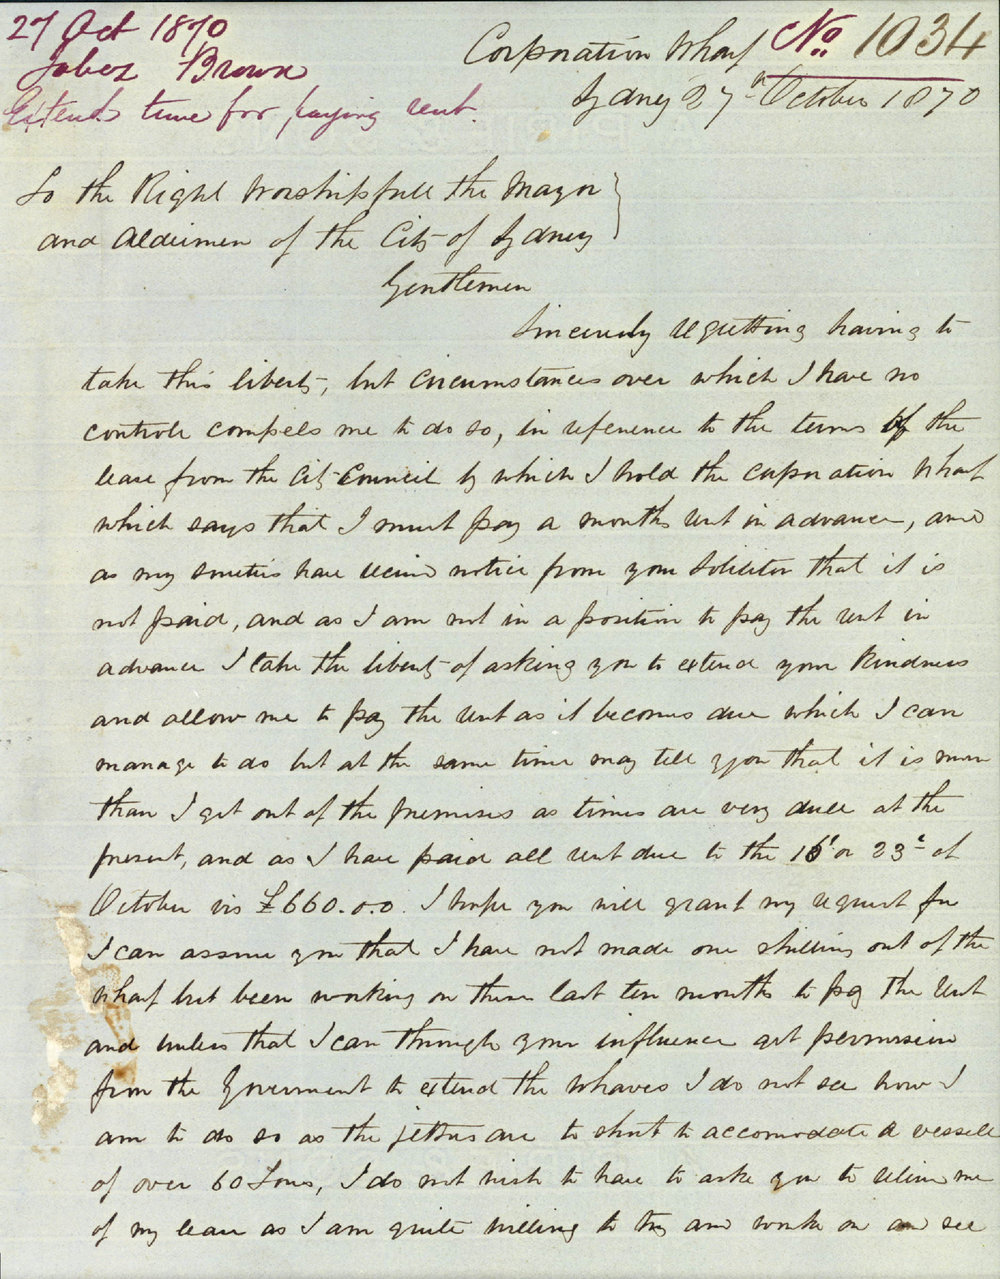 27 Oct 1870
Jabez Brown
Extend time for paying rent.
No. 1034
Corporation Wharf
Sydney 27th October 1870
To the Right Worshipfull the Mayor
and Aldermen of the City of Sydney
Gentlemen
Sincerely regretting having to
take this liberty, but circumstances over which I have no
controle compels me to do so, in reference to the terms of the
lease from the City Council by which I hold the Corporation Wharf
which says that I must pay a months rent in advance, and
as my sureties have received notice from your Solicitor that it is
not paid, and as I am not in a position to pay the rent in
advance I take the liberty of asking you to extend your kindness
and allow me to pay the rent as it becomes due which I can
manage to do but at the same time may tell you that it is more
than I get out of the premises as times are very dull at the
present, and as I have paid all rent due to the or 23rd of
October vis £660.0.0. I hope you will grant my request for
I can assure you that I have not made one shilling out of the
Wharf but been working on these last ten months to pay the rent
and unless that I can through your influence get permission
from the Goverment to extend the Wharves I do not see how I
am to do so as the jettys are to short to accomodate a vessell
of over 60 Tons, I do not wish to have to aske you to relieve me
of my lease as I am quite willing to try and worke on and see